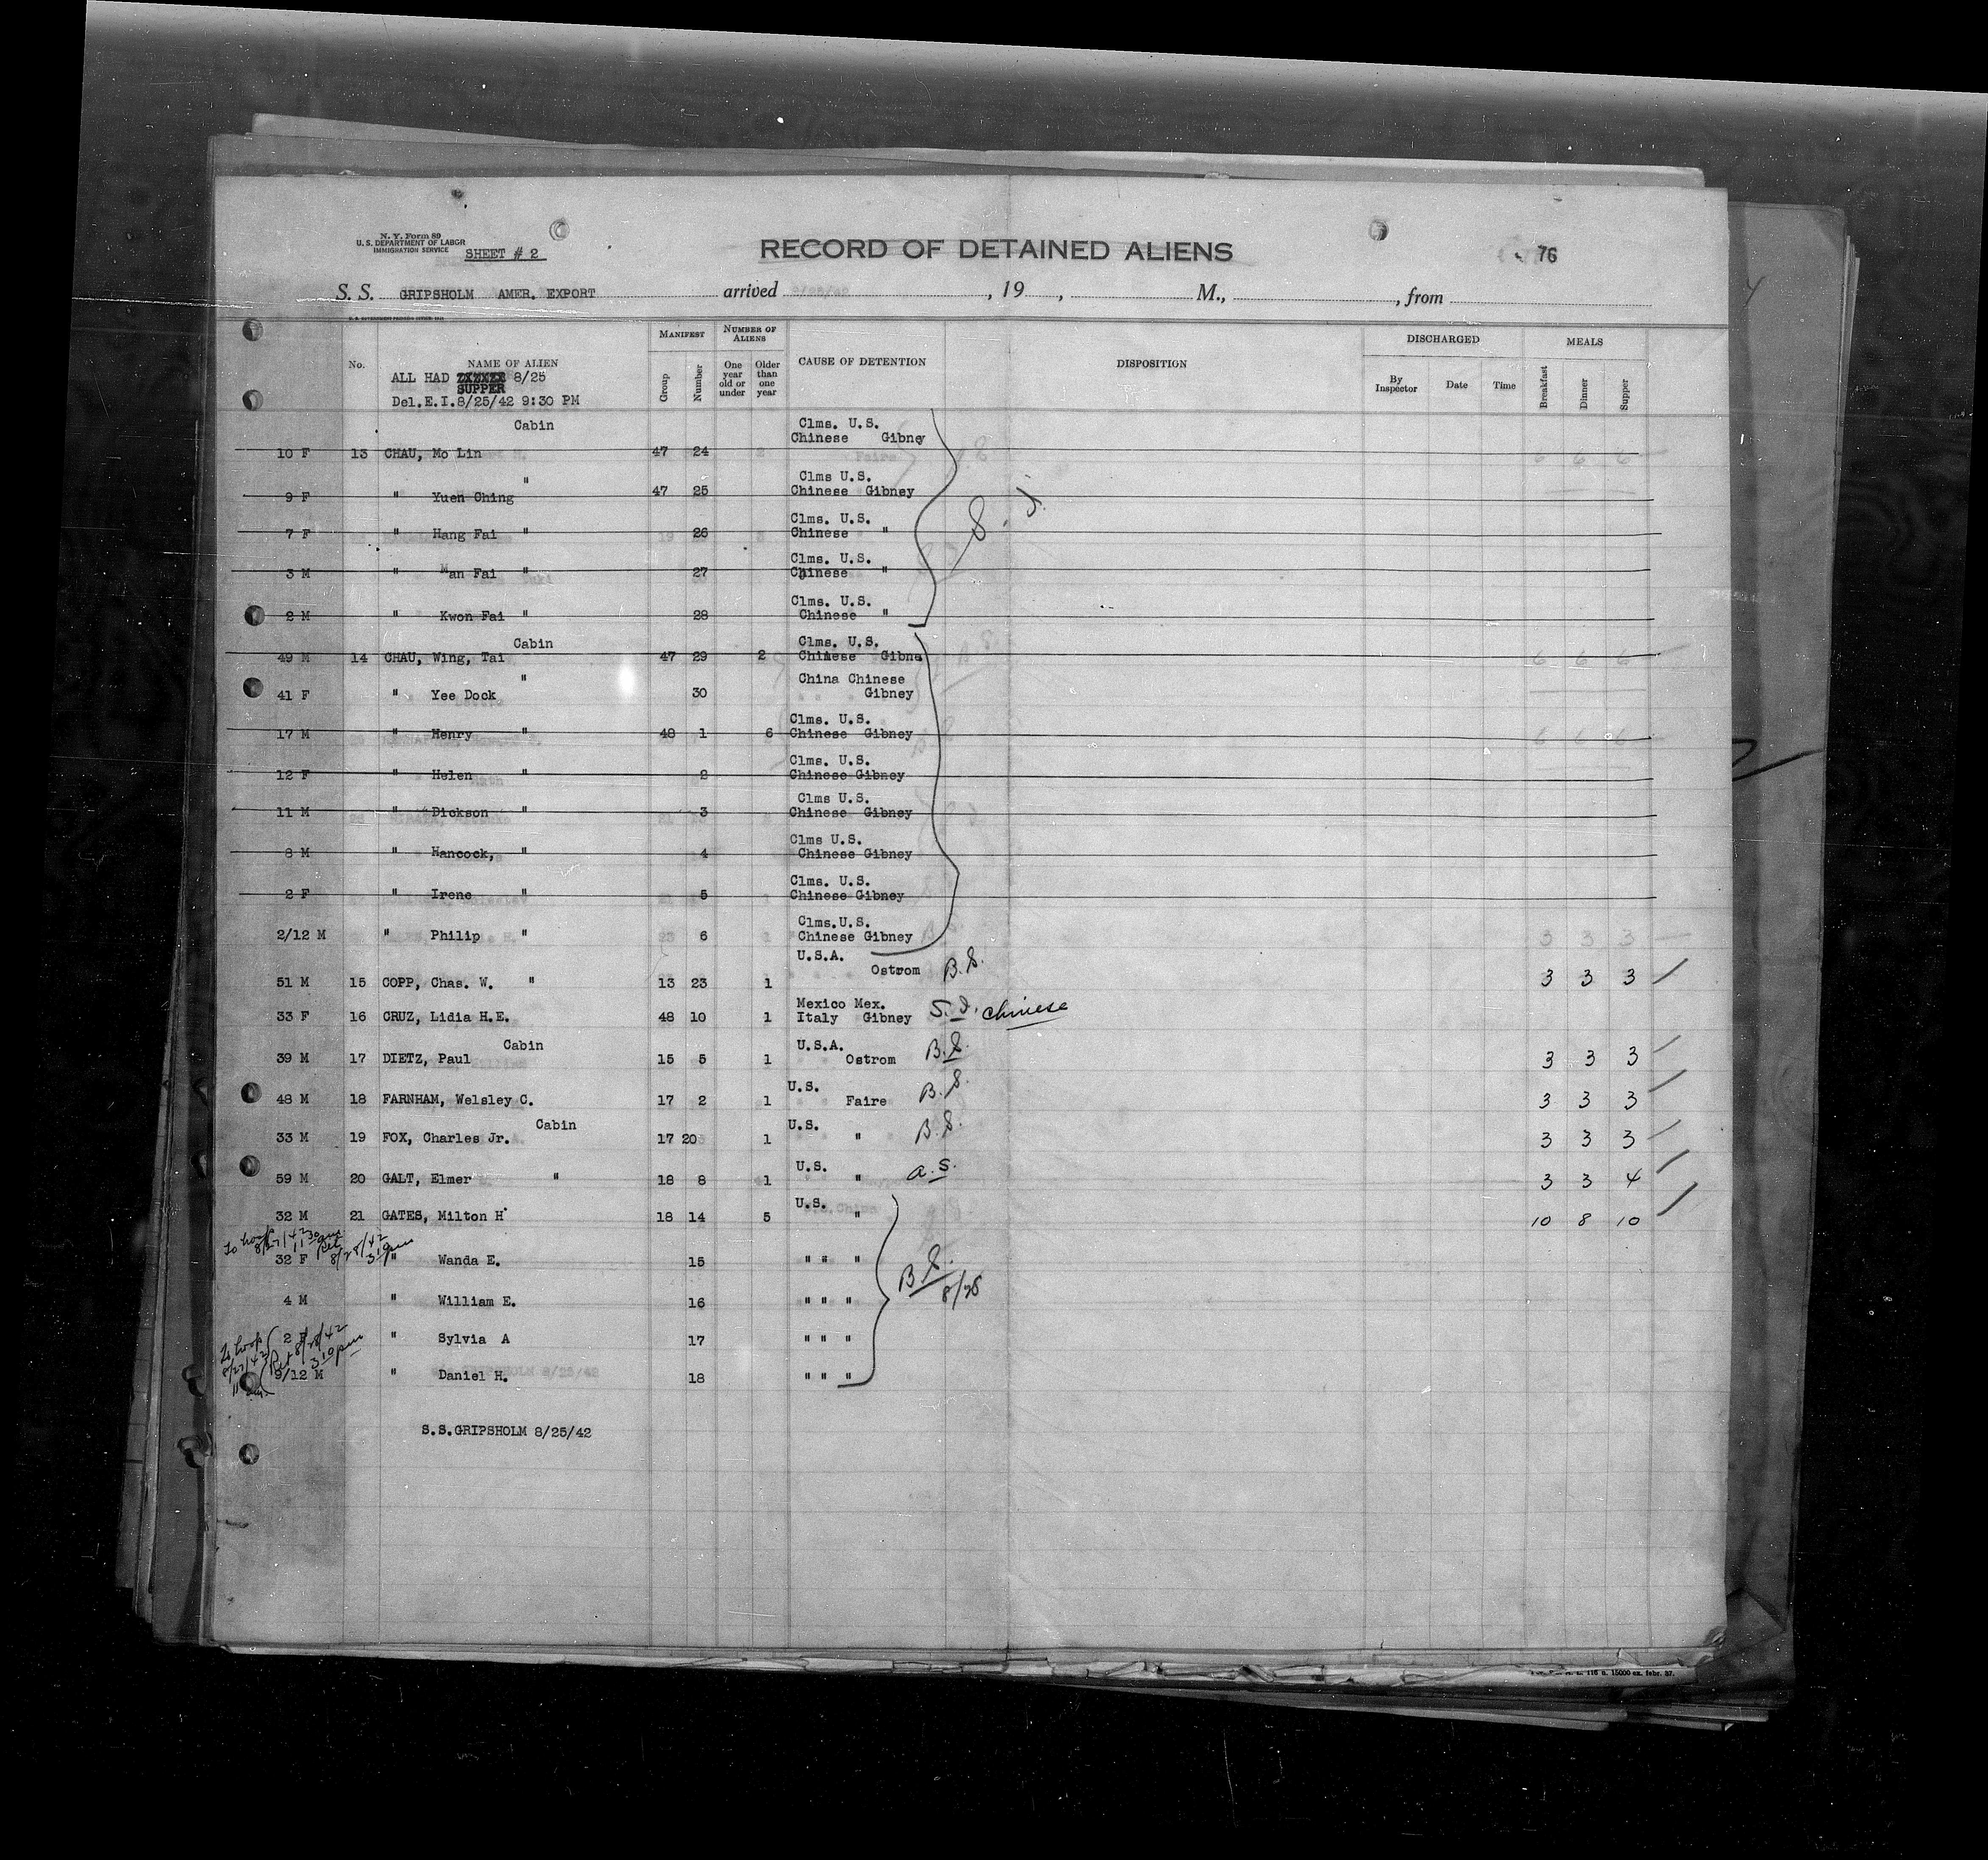 N. Y. Form 89
U. S. DEPARTMENT OF LABOR
IMMIGRATION SERVICE
SHEET # 2
RECORD OF DETAINED ALIENS
76
S. S. GRIPSHOLM AMER. EXPORT arrived , 19 , M., , from
No.
NAME OF ALIEN
MANIFEST
Group
Number
NUMBER OF ALIENS
One year old or under
Older than one year
CAUSE OF DETENTION
DISPOSITION
DISCHARGED
By Inspector
Date
Time
MEALS
Breakfast
Dinner
Supper
ALL HAD 8/25
SUPPER
Del.E.I.8/25/42 9:30 PM
Cabin Clms. U.S.
10 F 13 CHAU, Mo Lin 47 24 Chinese Gibney
" Clms U.S.
9 F " Yuen Ching 47 25 Chinese Gibney
Clms. U.S.
7 F " Hang Fai " 26 Chinese "
Clms. U.S.
3 M " Man Fai " 27 Chinese "
Clms. U.S.
2 M " Kwon Fai " 28 Chinese "
Cabin Clms. U.S.
49 M 14 CHAU, Wing, Tai 47 29 2 Chinese Gibne
" China Chinese
41 F " Yee Dock 30 Gibney
Clms. U.S.
17 M " Henry " 48 1 6 Chinese Gibney
Clms. U.S.
12 F " Helen " 2 Chinese Gibney
Clms U.S.
11 M " Dickson " 3 Chinese Gibney
Clms U.S.
8 M " Hancock, " 4 Chinese Gibney
Clms. U.S.
2 F " Irene " 5 Chinese Gibney
Clms.U.S.
2/12 M " Philip " 6 Chinese Gibney
U.S.A.
51 M 15 COPP, Chas. W. " 13 23 1 Ostrom B.S. 3 3 3
Mexico Mex.
33 F 16 CRUZ, Lidia H.E. 48 10 1 Italy Gibney S.I. Chinese
Cabin U.S.A.
39 M 17 DIETZ, Paul 15 5 1 Ostrom B.S. 3 3 3
U.S.
48 M 18 FARNHAM, Welsley C. 17 2 1 Faire B.S. 3 3 3
Cabin U.S.
33 M 19 FOX, Charles Jr. 17 20 1 " B.S. 3 3 3
U.S.
59 M 20 GALT, Elmer " 18 8 1 " a.S. 3 3 4
U.S.
32 M 21 GATES, Milton H 18 14 5 " 10 8 10
To hosp 8/27/42 Ret 8/28/42 310pm
32 F " Wanda E. 15 " " "
B.S. 8/28
4 M " William E. 16 " " "
To hosp 8/27/42 Ret 8/28/42 310 pm
2 F " Sylvia A 17 " " "
9/12 M " Daniel H. 18 " " "
S.S.GRIPSHOLM 8/25/42
116 a. 15000 ex. febr. 37.